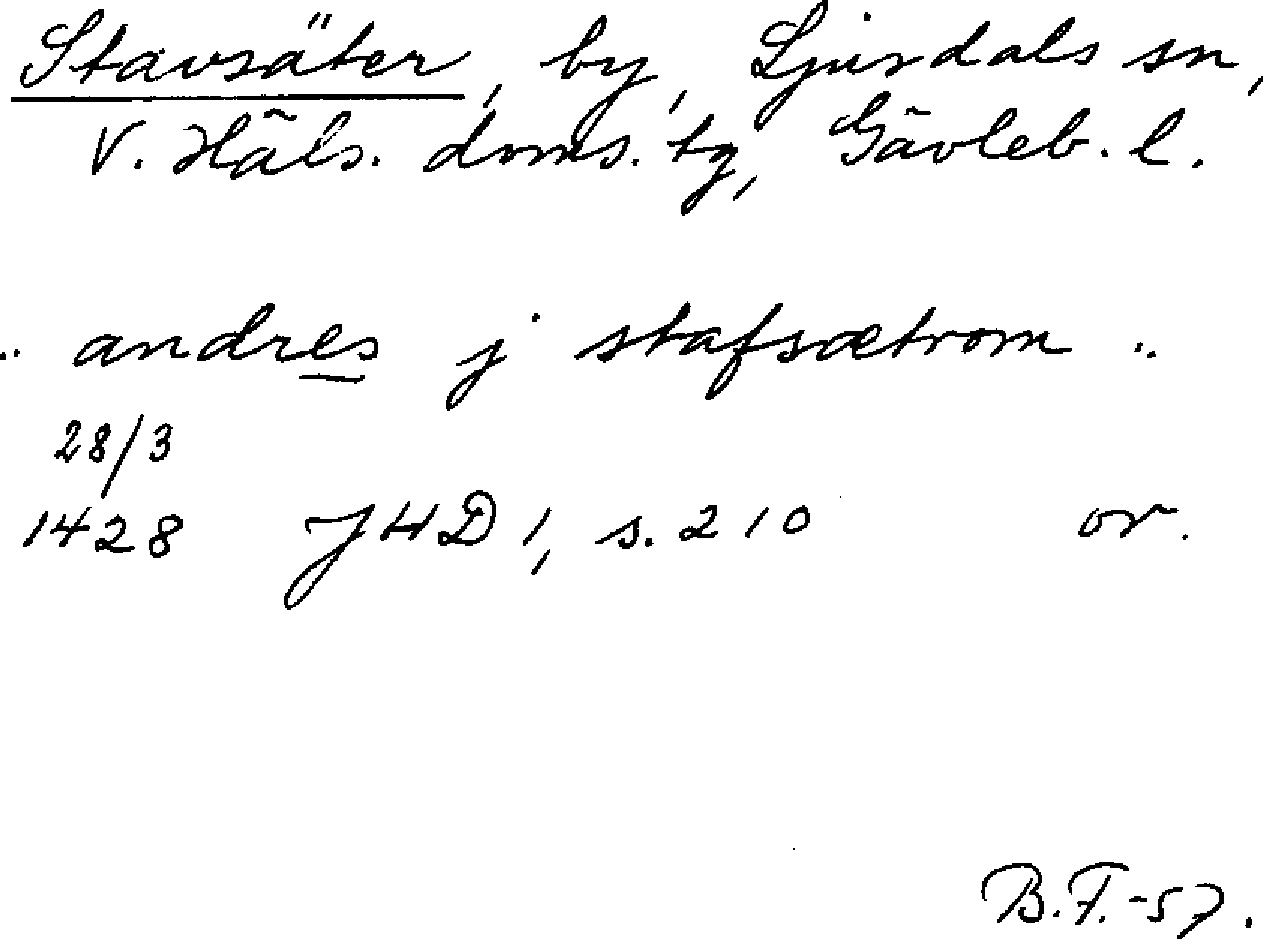 Stavsäter, by, Ljusdals sn,
V. Häls. doms. tg, Gävleb. l.
.. andres j stafsætrom ..
28/3
1428 JHD 1, s. 210 or.
B.F.-57.